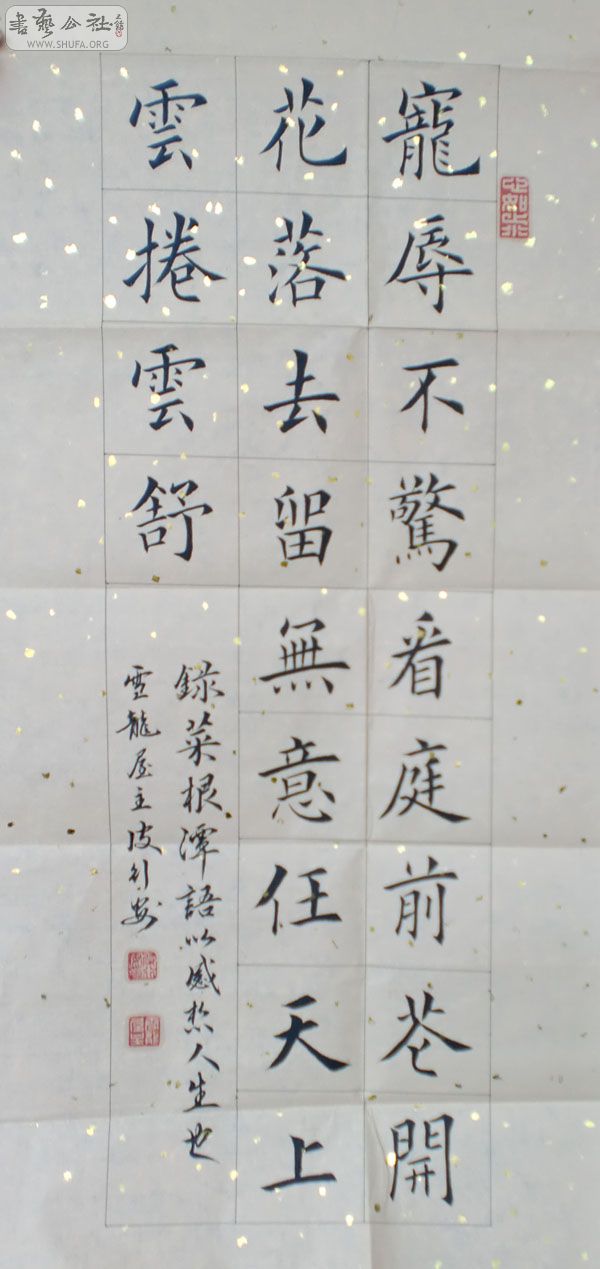 寵辱不驚看庭前花開
花落去留無意任天上
雲捲雲舒
録菜根潭語以感悠人生也
雲龍屋主
書藝公社
WWW.SHUFA.ORG